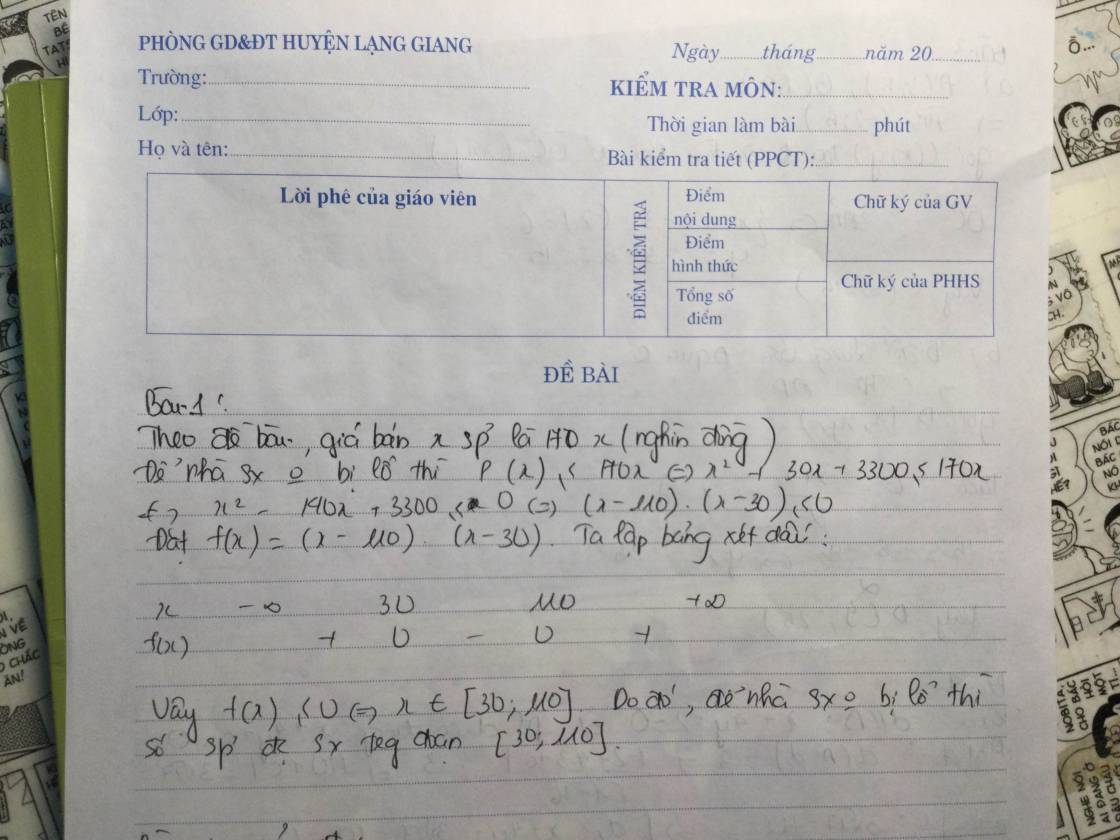 PHÒNG GD&ĐT HUYỆN LẠNG GIANG
Trường:
Lớp:
Họ và tên:
Ngày tháng năm 20
KIỂM TRA MÔN:
Thời gian làm bài phút
Bài kiểm tra tiết (PPCT):
Lời phê của giáo viên
ĐIỂM KIỂM TRA
Điểm
nội dung
Điểm
hình thức
Tổng số
điểm
Chữ ký của GV
Chữ ký của PHHS
ĐỀ BÀI
Bài 1:
Theo đề bài, giá bán x sp là 170 x (nghìn đồng)
Để nhà sx o bị lỗ thì P(x) ≤ 170x <=> x² + 30x + 3300 ≤ 170x
<=> x² - 140x + 3300 ≤ 0 <=> (x - 110). (x - 30) ≤ 0
Đặt f(x) = (x - 110). (x - 30). Ta lập bảng xét dấu:
x -∞ 30 110 +∞
f(x) + 0 - 0 +
Vậy f(x) ≤ 0 <=> x ∈ [30; 110]. Do đó, để nhà sx o bị lỗ thì
số sp đc sx teg đoạn [30; 110].